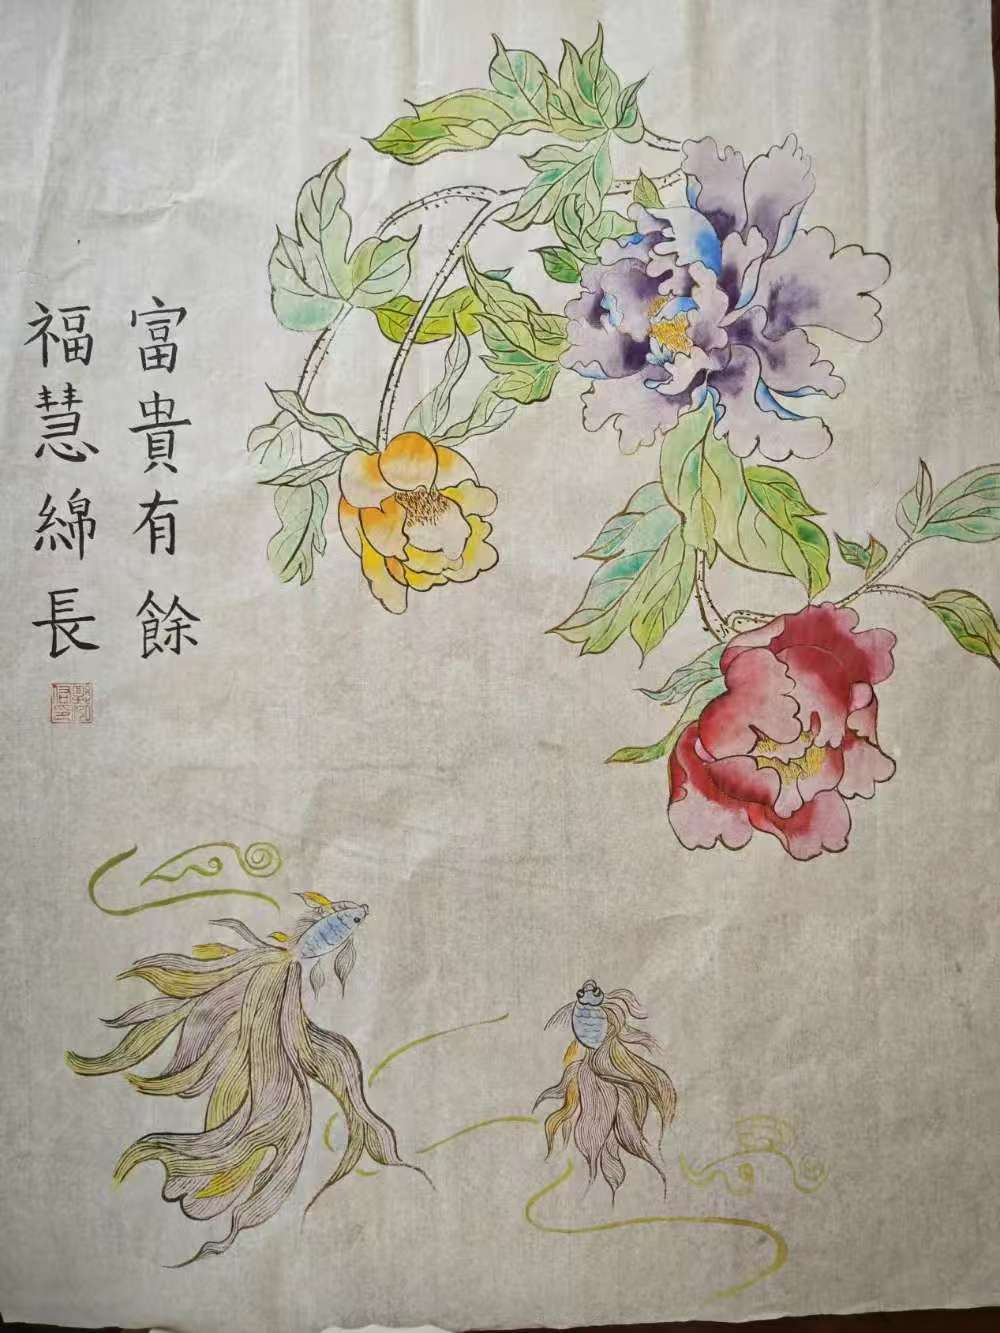 富貴有餘
福慧綿長